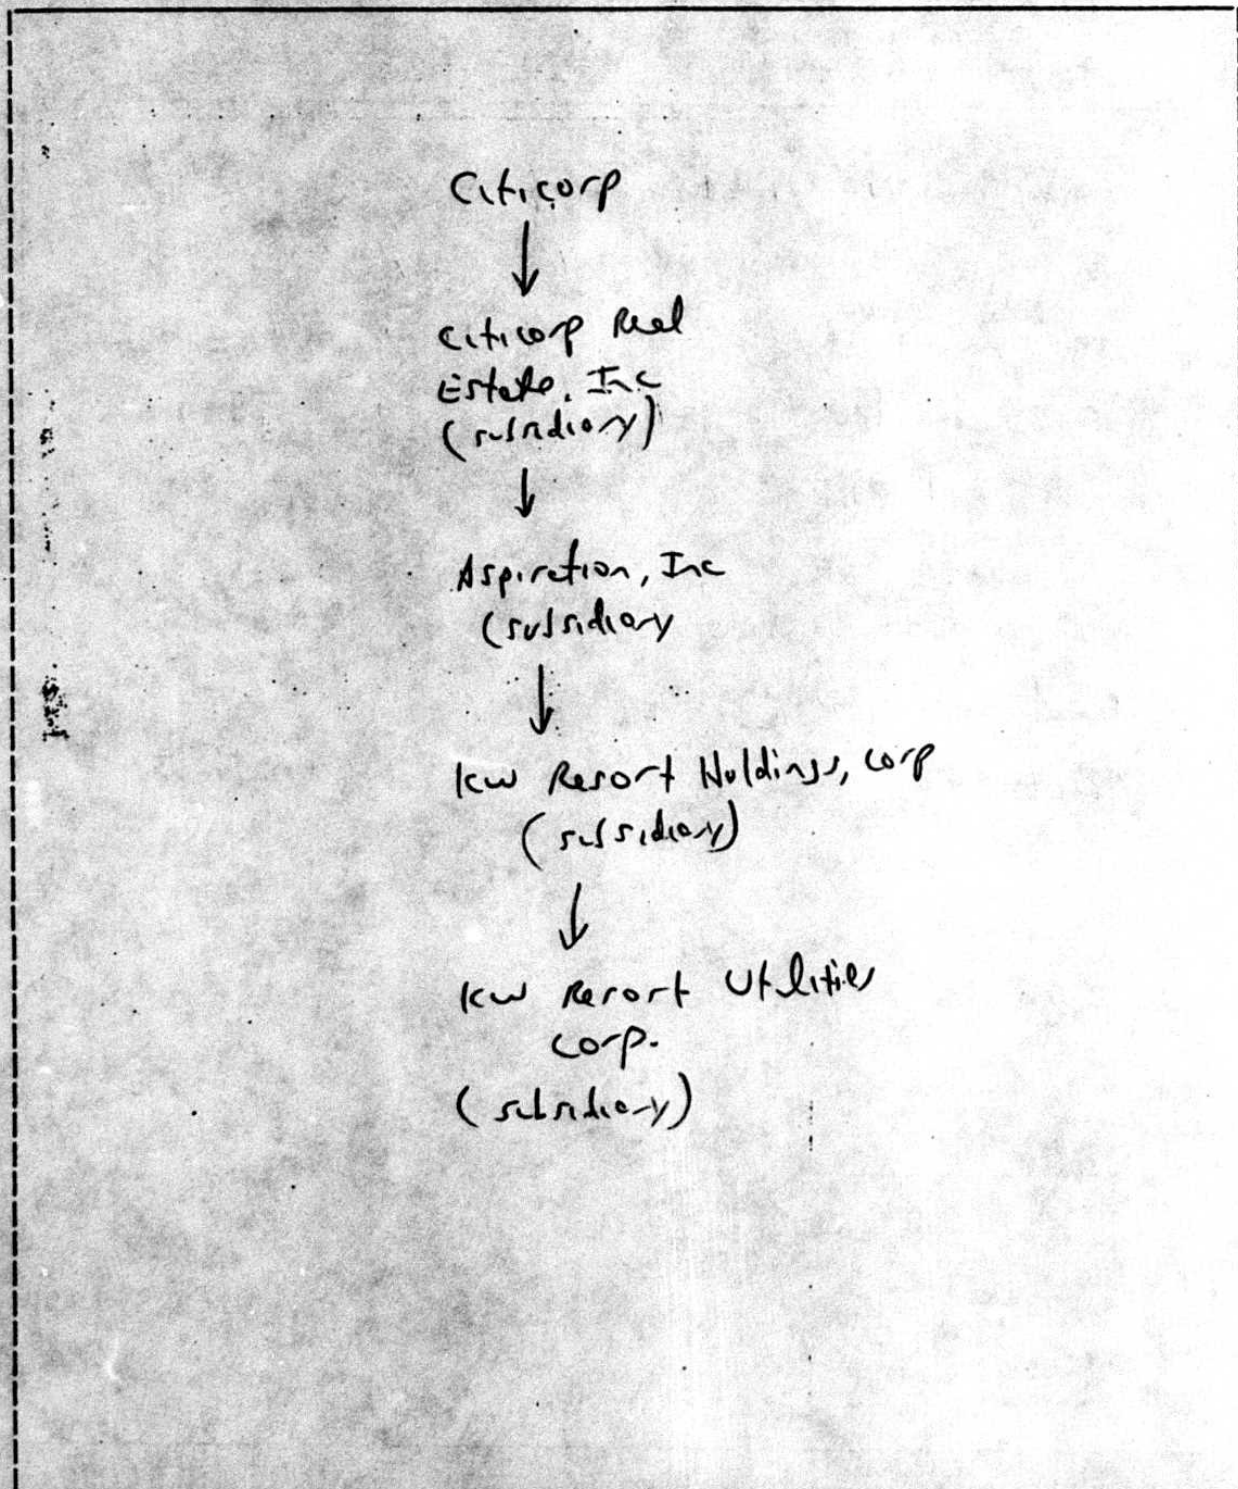 Citicorp
Citicorp Real
Estate, Inc
(subsidiary)
Aspiration, Inc
(subsidiary
KW Resort Holdings, Corp
(subsidiary)
KW Resort Utilities
Corp.
(subsidiary)